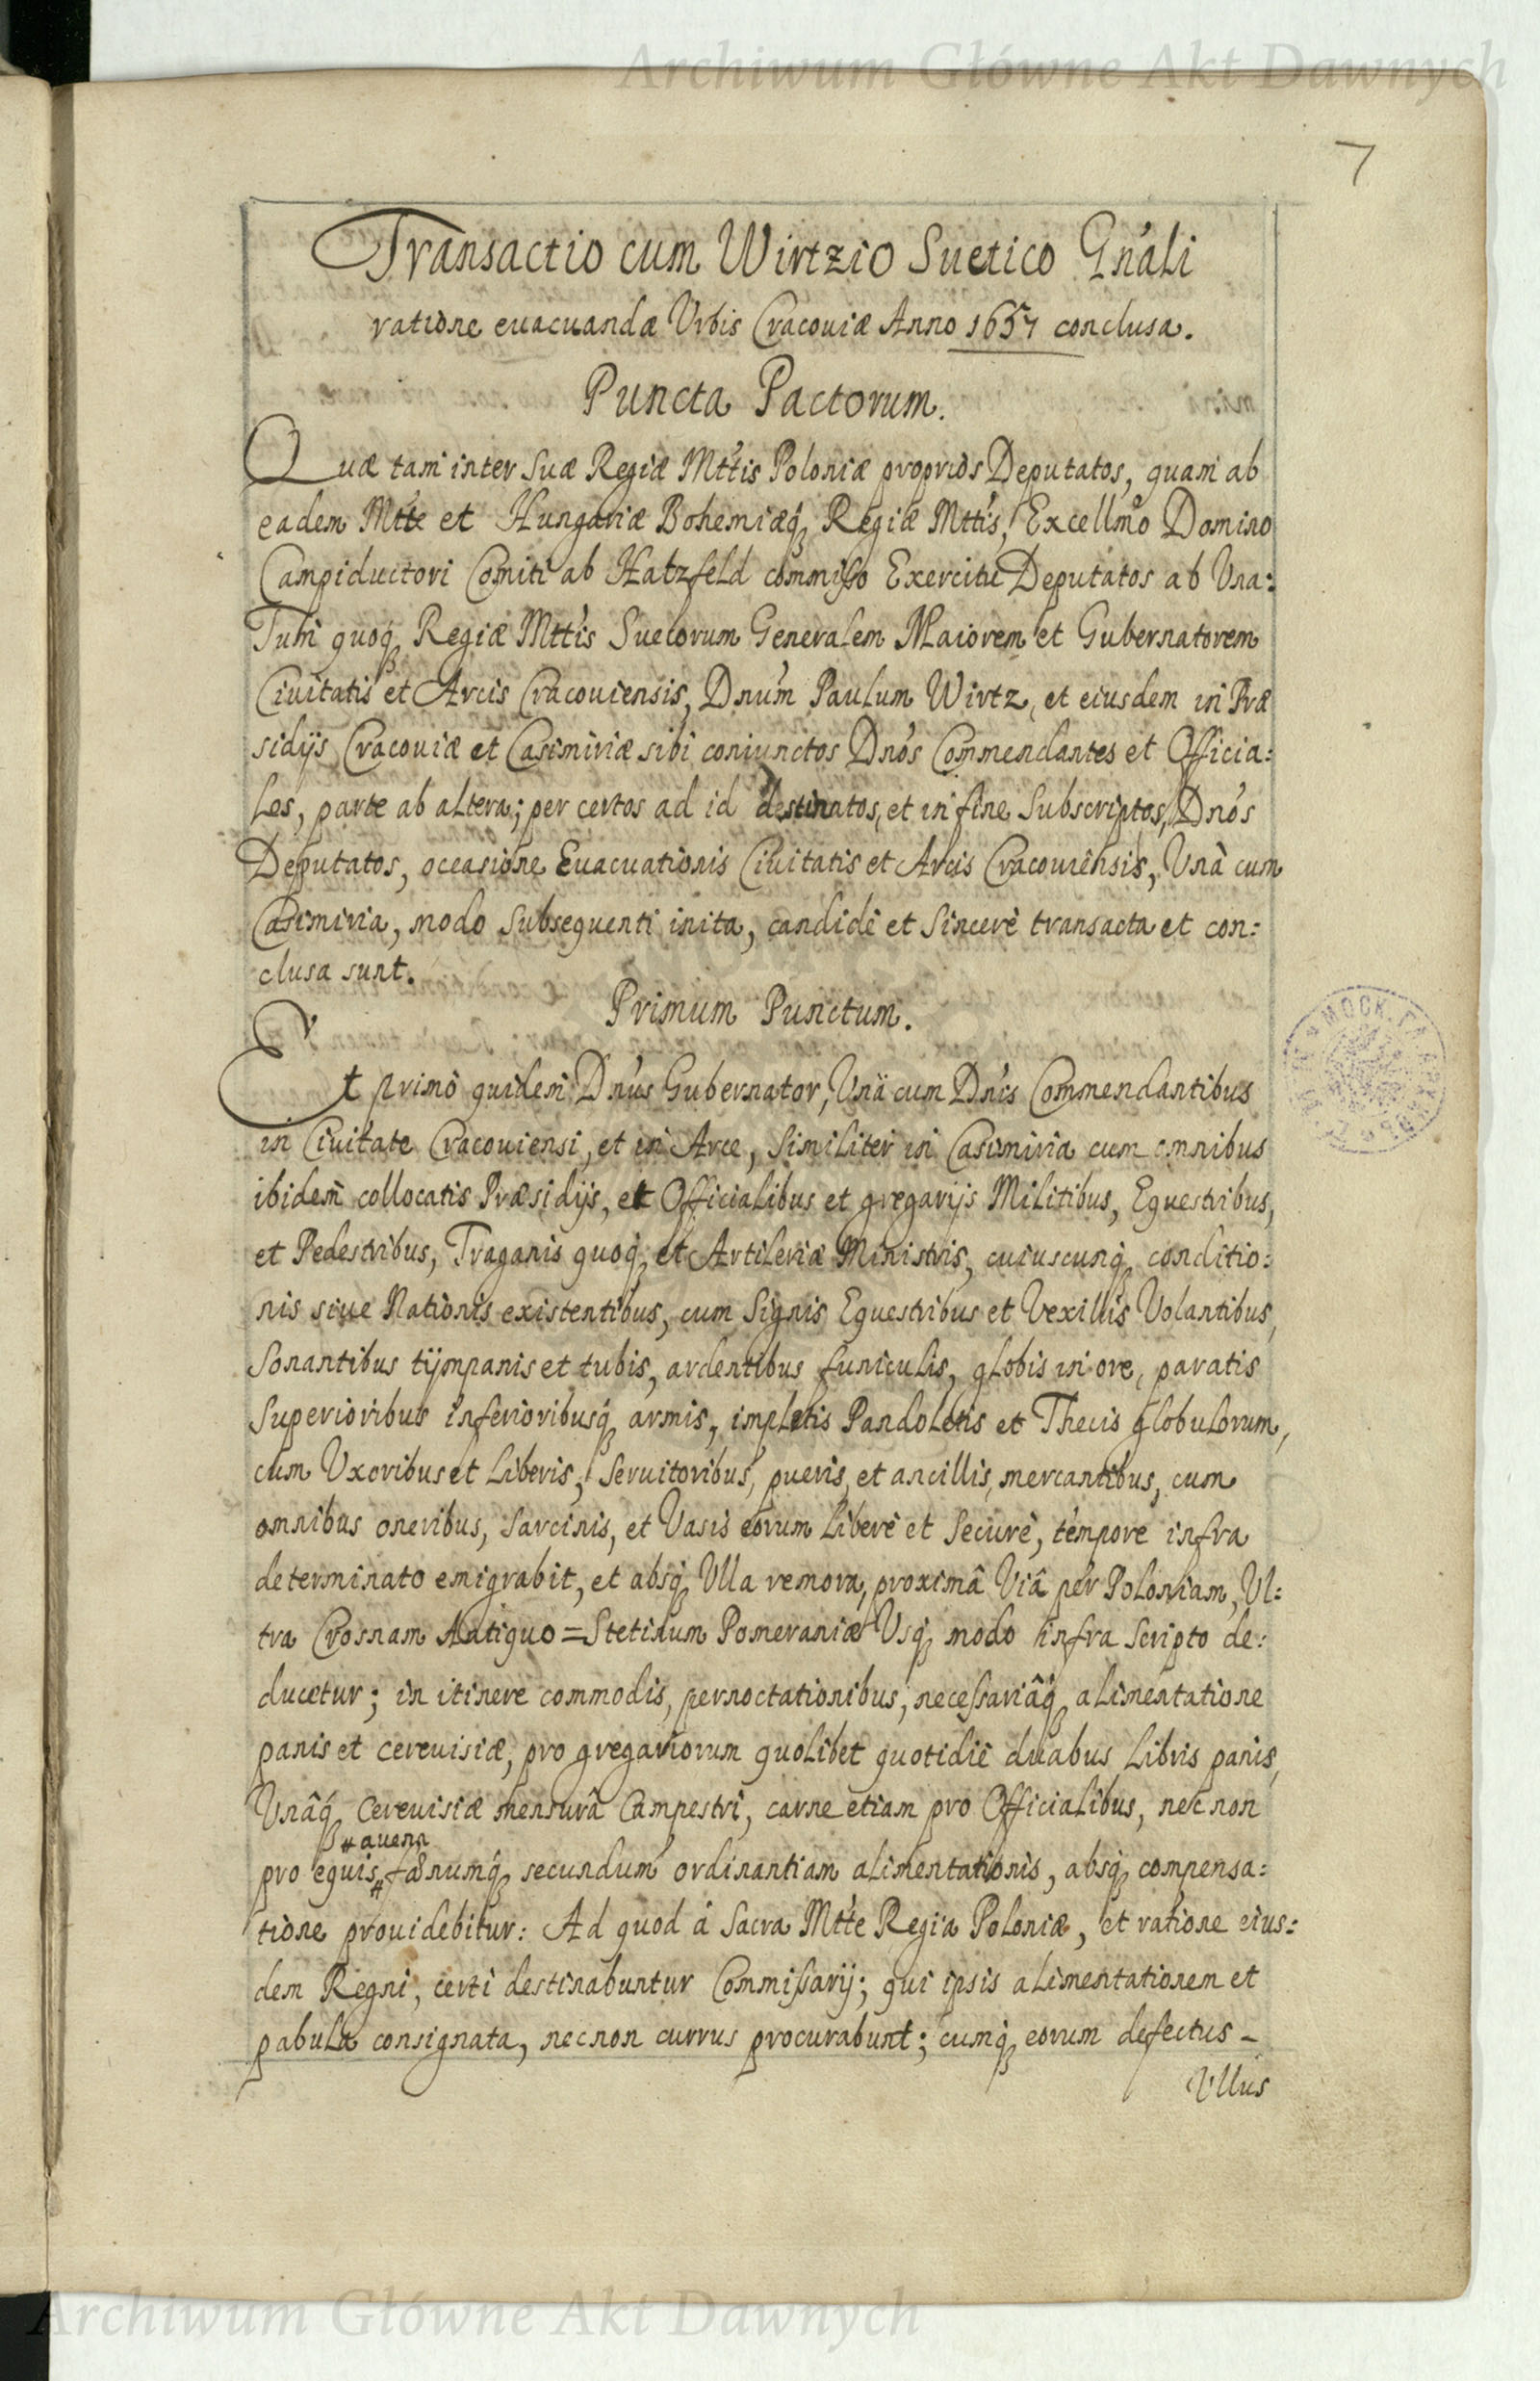 Archiwum Główne Akt Dawnych
7
Transactio cum Wirtzio Suetico Gn̄ali
ratione euacuandæ Vrbis Cracouiæ Anno 1657 conclusa.
Puncta Pactorum.
Quæ tam inter Suæ Regiæ Mttis Poloniæ proprios Deputatos, quam ab
eadem Mtte et Hungariæ Bohemiæq́ Regiæ Mttis, Excellmo Domino
Campiductori Comiti ab Hatzfeld commisso Exercitu Deputatos ab Vna:
Tum quoq́ Regiæ Mttis Suecorum Generalem Maiorem et Gubernatorem
Ciuitatis et Arcis Cracouiensis, Dnum Paulum Wirtz, et eiusdem in Præ
sidijs Cracouiæ et Casimiriæ sibi coniunctos Dnos Commendantes et Officia:
les, parte ab altera; per certos ad id destinatos, et in fine Subscriptos, Dnos
Deputatos, occasione Euacuationis Ciuitatis et Arcis Cracouiensis, Vnà cum
Casimiria, modo Subsequenti inita, candidè et Sincerè transacta et con:
clusa sunt.
Primum Punctum.
Et primò quidem Dnus Gubernator, Vnà cum Dnis Commendantibus
in Ciuitate Cracouiensi, et in Arce, Similiter in Casimiria cum omnibus
ibidem collocatis Præsidijs, et Officialibus et gregarijs Militibus, Equestribus,
et Pedestribus, Traganis quoq́ et Artileriæ Ministris, cuiuscunq́ conditio:
nis siue Nationis existentibus, cum Signis Equestribus et Vexillis Volantibus,
Sonantibus tÿmpanis et tubis, ardentibus funiculis, globis in ore, paratis
Superioribus inferioribusq́ armis, impletis Pandoletis et Thecis globulorum,
cum Vxoribus et Liberis, Seruitoribus, pueris, et ancillis, mercantibus, cum
omnibus oneribus, Sarcinis, et Vasis eorum Liberè et Securè, tempore infra
determinato emigrabit, et absq́ Vlla remora, proximâ Viâ per Poloniam, Vl:
tra Crosnam Antiquo=Stetinum Pomeraniæ Vsq́ modo infra Scripto de:
ducetur; in itinere commodis, pernoctationibus, necessariâq́ alimentatione
panis et cereuisiæ, pro gregariorum quolibet quotidiè duabus Libris panis,
Vnâq́ Cereuisiæ mensurâ Campestri, carne etiam pro Officialibus, nec non
# auena
pro equis # fænumq́ secundum ordinantiam alimentationis, absq́ compensa:
tione prouidebitur: Ad quod á Sacra Mtte Regia Poloniæ, et ratione eius:
dem Regni, certi destinabuntur Commissarij; qui ipsis alimentationem et
pabula consignata, nec non currus procurabunt; cumq́ eorum defectus –
Vllus
Archiwum Główne Akt Dawnych